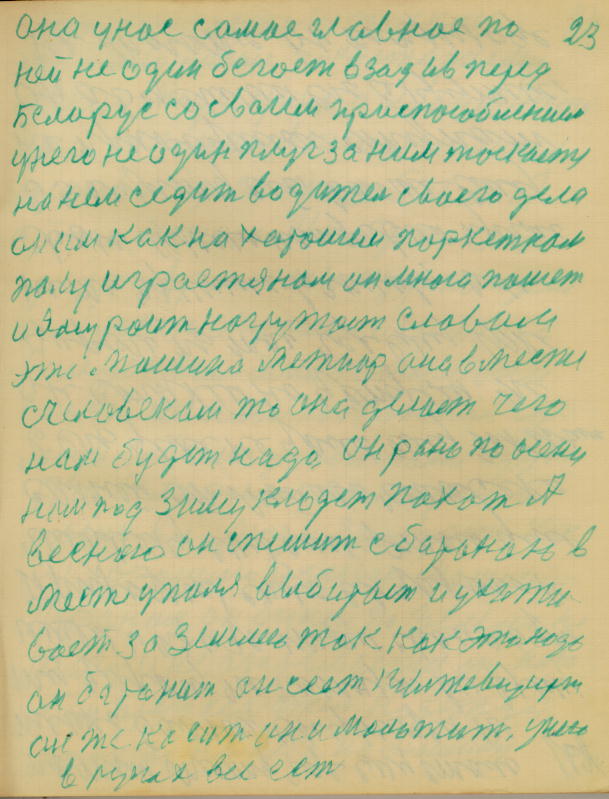 она у нас самае главное по 23
ней не один бегоет взад ив перед
Беларус со сваим приспособлением
унего не один плуг за ним тоскают
на нем седит водител своего дела
он им как на харошем поркетном
полу играет он многа пашет
и роит нагружает словам
эта машина она вместе
с человекам то она делает чего
нам будет надо он рано по осени
нам под зиму кладет пахат А
весною он спешит с бараною в
место уполя выбирает и ухажи
вает за землею так как это надо
он баранит он сеет культивирует
он же косит он и малотит, унего
в руках все ест